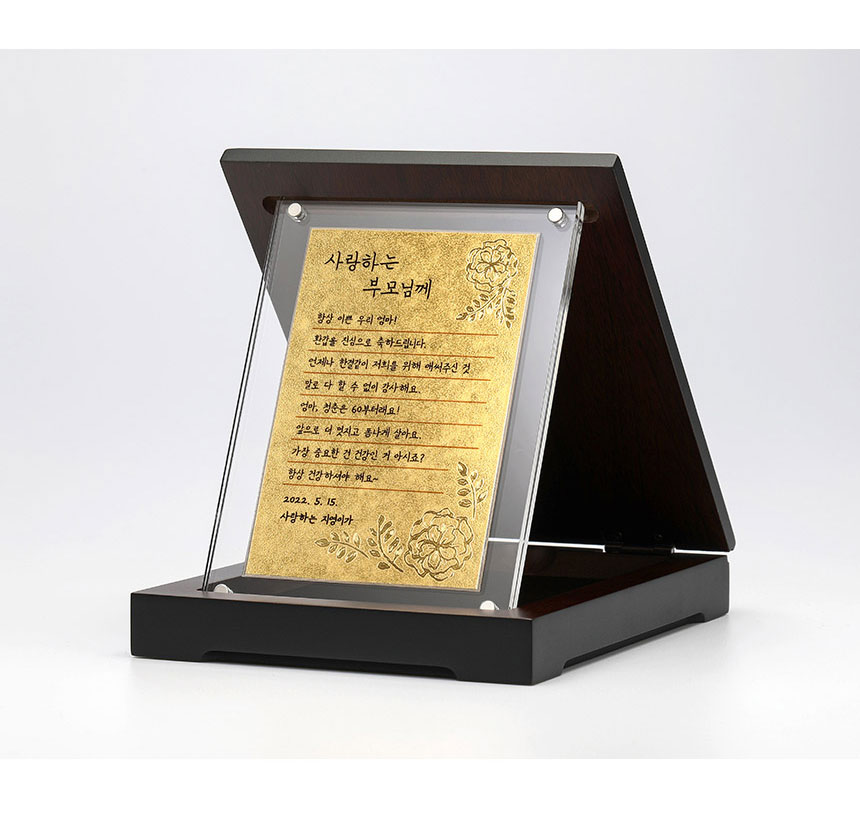 사랑하는
부모님께
항상 이쁜 우리 엄마!
환갑을 진심으로 축하드립니다.
언제나 한결같이 저희를 위해 애써주신 것
말로 다 할 수 없이 감사해요.
엄마, 청춘은 60부터래요!
앞으로 더 멋지고 폼나게 살아요.
가장 중요한 건 건강인 거 아시죠?
항상 건강하셔야 해요~
2022. 5. 15.
사랑하는 지영이가